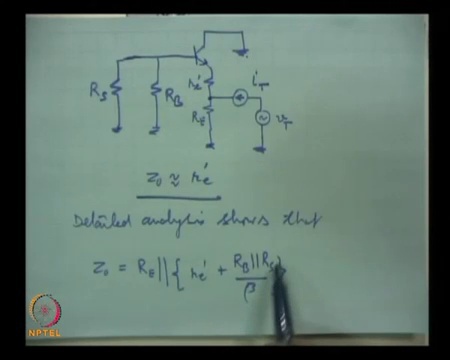 R_S R_B r_e' R_E i_T v_T
z_o ≈ r_e'
Detailed analysis shows that
z_o = R_E || { r_e' + R_B || R_S / β }
NPTEL